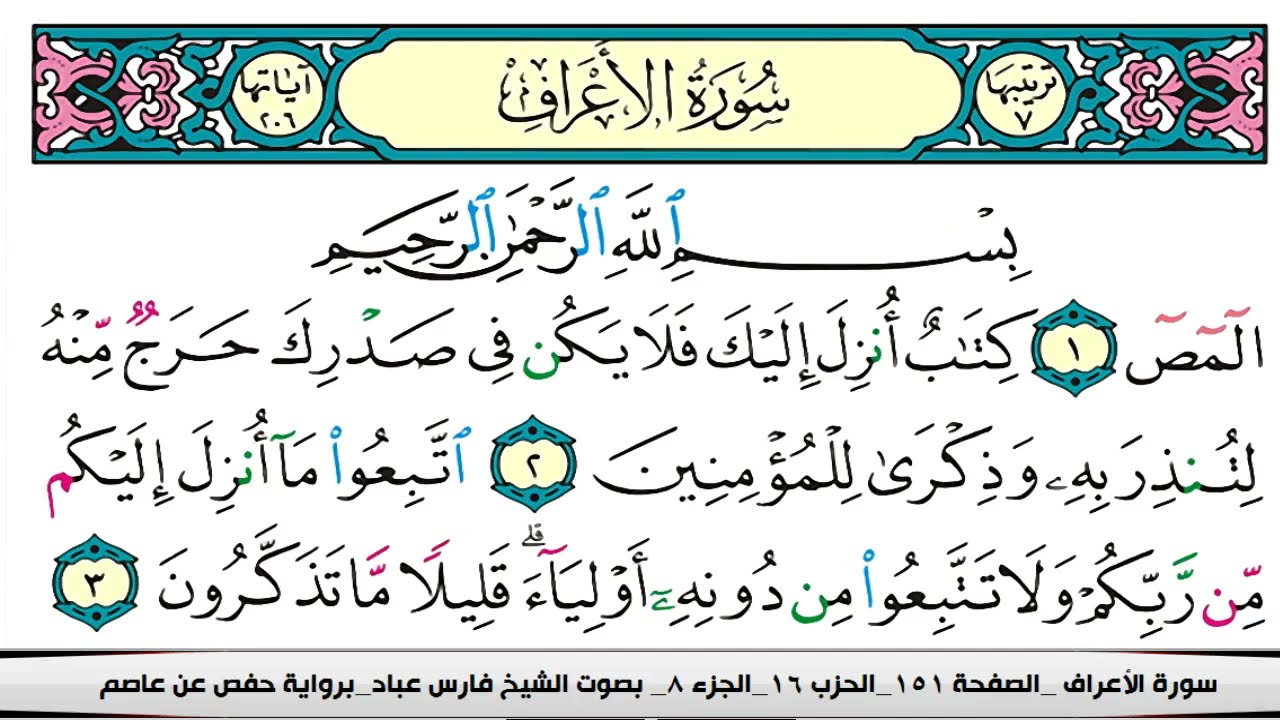 ترتيبها ٧ سُورَةُ الأَعْرَافِ آياتها ٢٠٦
بِسْمِ ٱللَّهِ ٱلرَّحْمَٰنِ ٱلرَّحِيمِ
الٓمٓصٓ ١ كِتَٰبٌ أُنزِلَ إِلَيْكَ فَلَا يَكُن فِى صَدْرِكَ حَرَجٌ مِّنْهُ
لِتُنذِرَ بِهِۦ وَذِكْرَىٰ لِلْمُؤْمِنِينَ ٢ ٱتَّبِعُوا۟ مَآ أُنزِلَ إِلَيْكُم
مِّن رَّبِّكُمْ وَلَا تَتَّبِعُوا۟ مِن دُونِهِۦٓ أَوْلِيَآءَ ۗ قَلِيلًا مَّا تَذَكَّرُونَ ٣
سورة الأعراف _الصفحة ١٥١_الحزب ١٦_الجزء ٨_ بصوت الشيخ فارس عباد_برواية حفص عن عاصم